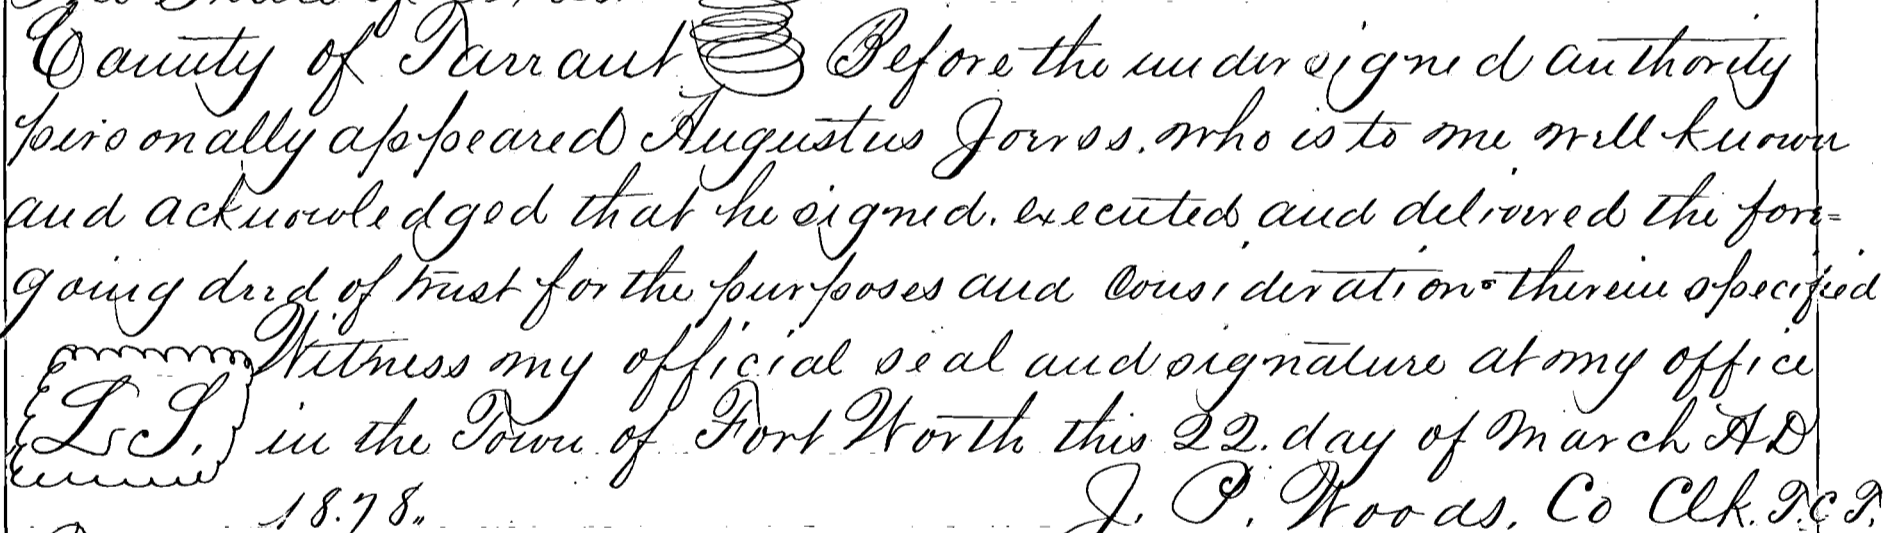 The State of Texas
County of Tarrant Before the undersigned authority
personally appeared Augustus who is to me well known
and acknowledged that he signed. executed and delivered the fore=
going deed of trust for the purposes and Consideration therein specified
Witness my official seal and signature at my office
L. S. in the Town of Fort Worth this 22. day of March A D
18.78.. J. P. Woods, Co Clk. T. C. T.